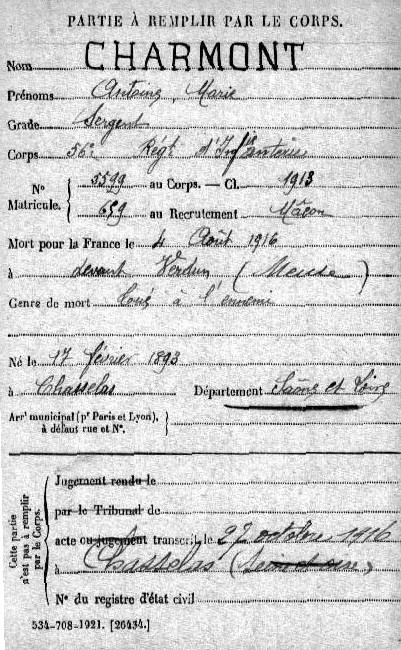 PARTIE À REMPLIR PAR LE CORPS.
Nom CHARMONT
Prénoms Antoine Marie
Grade Sergent
Corps 56e Régt d'Infanterie
N° Matricule. 5599 au Corps. — Cl. 1913
659 au Recrutement Mâcon
Mort pour la France le 4 Août 1916
à devant Verdun (Meuse)
Genre de mort Tué à l'ennemi
Né le 17 février 1893
à Chasselas Département Saône et Loire
Arrt municipal (pr Paris et Lyon), à défaut rue et N°.
Cette partie n'est pas à remplir par le Corps.
Jugement rendu le
par le Tribunal de
acte ou jugement transcrit le 27 octobre 1916
à Chasselas
N° du registre d'état civil
534-708-1921. [26434.]